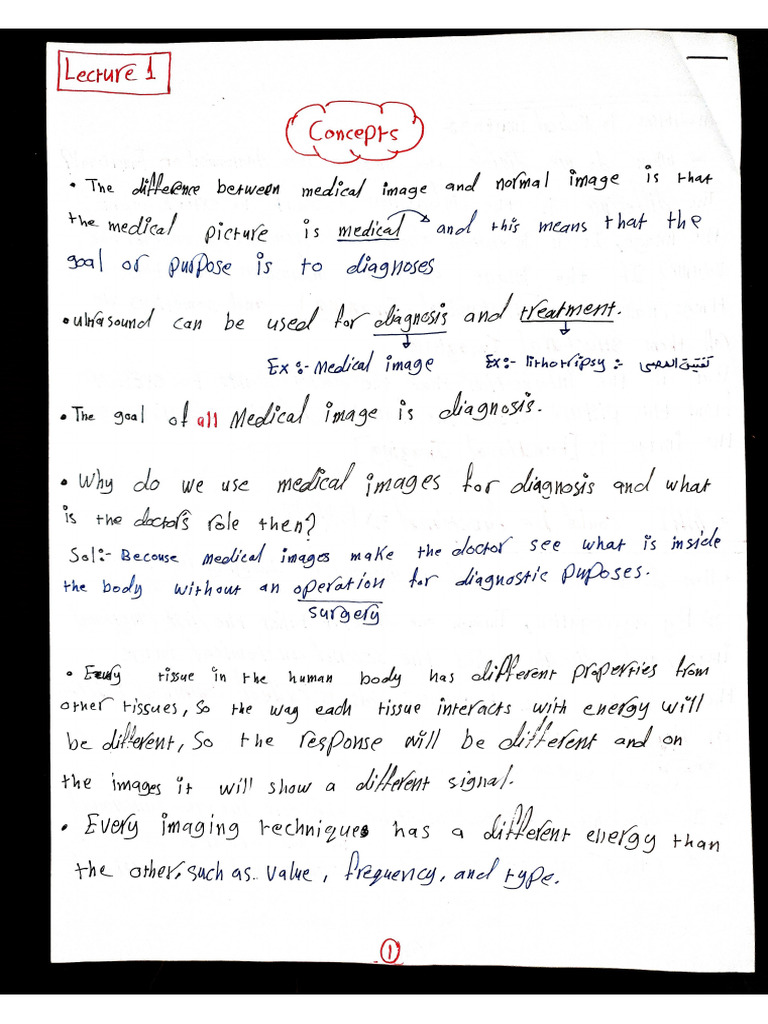 Lecture 1
Concepts
• The difference between medical image and normal image is that
the medical picture is medical and this means that the
goal or purpose is to diagnoses
• ultrasound can be used for diagnosis and treatment.
Ex :- Medical image Ex:- lithotripsy :- تفتيت الحصى
• The goal of all Medical image is diagnosis.
• Why do we use medical images for diagnosis and what
is the doctor's role then?
Sol:- Becouse medical images make the doctor see what is inside
the body without an operation for diagnostic puposes.
surgery
• Every tissue in the human body has different properties from
other tissues, so the way each tissue interacts with energy will
be different, So the response will be different and on
the images it will show a different signal.
• Every imaging techniques has a different energy than
the other, such as value, frequency, and type.
1